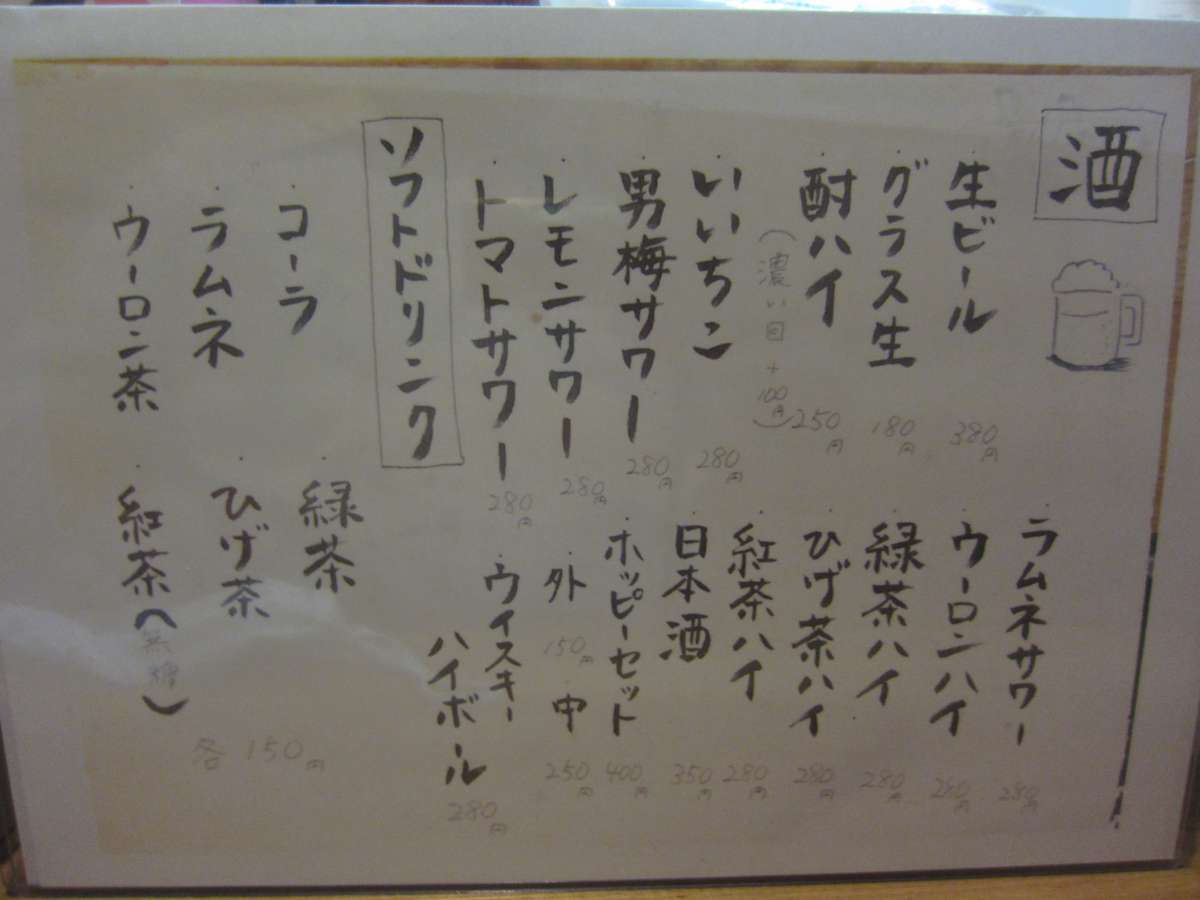 酒
生ビール 380円
グラス生 180円
酎ハイ 250円
(濃い目+100円)
いいちこ 280円
男梅サワー 280円
レモンサワー 280円
トマトサワー 280円
ラムネサワー 280円
ウーロンハイ 280円
緑茶ハイ 280円
ひげ茶ハイ 280円
紅茶ハイ 280円
日本酒 350円
ホッピーセット 400円
外 150円 中 250円
ウイスキー
ハイボール 280円
ソフトドリンク
コーラ
ラムネ
ウーロン茶
緑茶
ひげ茶
紅茶(無糖)
各 150円